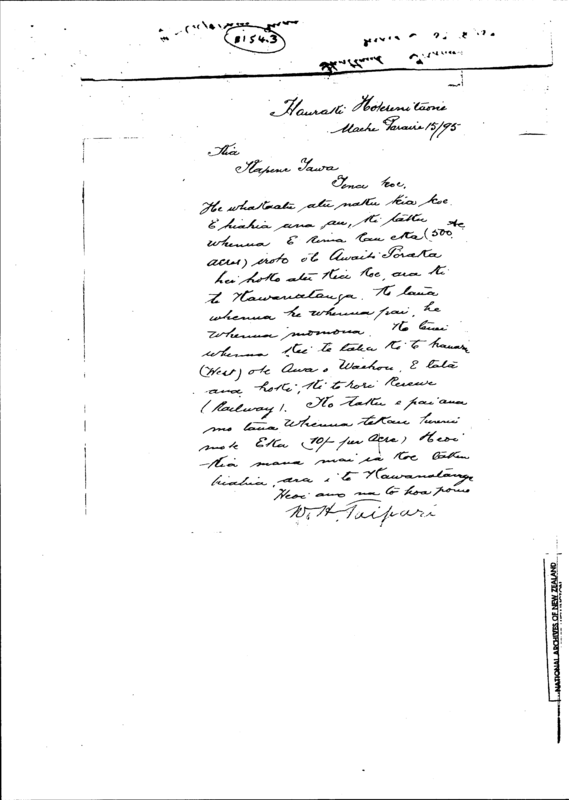 8154.3
Hauraki Hotereni taone
Mache Paraire 15/95
Kia
Kapene Tawa
Tena koe,
He whakaatu atu naku kia koe
E hiahia ana au, ki taku
whenua E Rima Rau eka (500
acres) iroto ote Awaiti Poraka
hei hoko atu Kia Koe, ara ki
te Kawanatanga. Ko taua
whenua he whenua pai, he
whenua momona. Ko tenei
whenua Kei te taha Ki te hauaru
(West) ote Awa o Waehou, E tata
ana hoki, Ki te Reriwe
(Railway). Ko taku e pai ana
mo taua Whenua tekau hereni
mo te Eka (10/- per Acre) Heoi
Kia mana mai ia Koe taku
hiahia, ara i te Kawanatanga
Heoi ano na to hoa pono
W. H. Taipari
NATIONAL ARCHIVES OF NEW ZEALAND